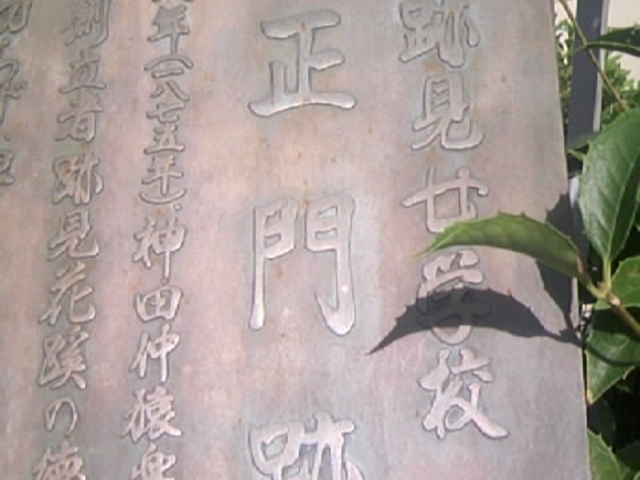 跡見女学校
正門跡
年(一八七五年)、神田仲猿楽
創立者跡見花蹊の徳